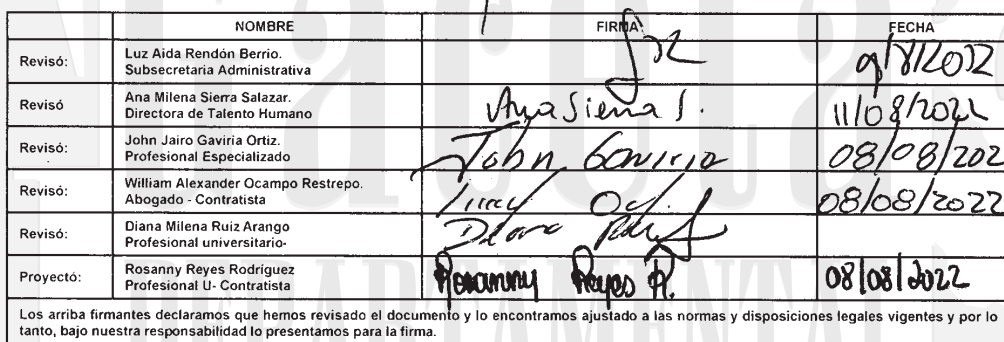 NOMBRE FIRMA FECHA
Revisó: Luz Aida Rendón Berrio.
Subsecretaria Administrativa 9/8/2022
Revisó Ana Milena Sierra Salazar.
Directora de Talento Humano Ana Sierra S. 11/08/2022
Revisó: John Jairo Gaviria Ortiz.
Profesional Especializado John Gaviria 08/08/202
Revisó: William Alexander Ocampo Restrepo.
Abogado - Contratista 08/08/2022
Revisó: Diana Milena Ruiz Arango
Profesional universitario- Diana
Proyectó: Rosanny Reyes Rodríguez
Profesional U- Contratista Rosanny Reyes R. 08/08/2022
Los arriba firmantes declaramos que hemos revisado el documento y lo encontramos ajustado a las normas y disposiciones legales vigentes y por lo
tanto, bajo nuestra responsabilidad lo presentamos para la firma.